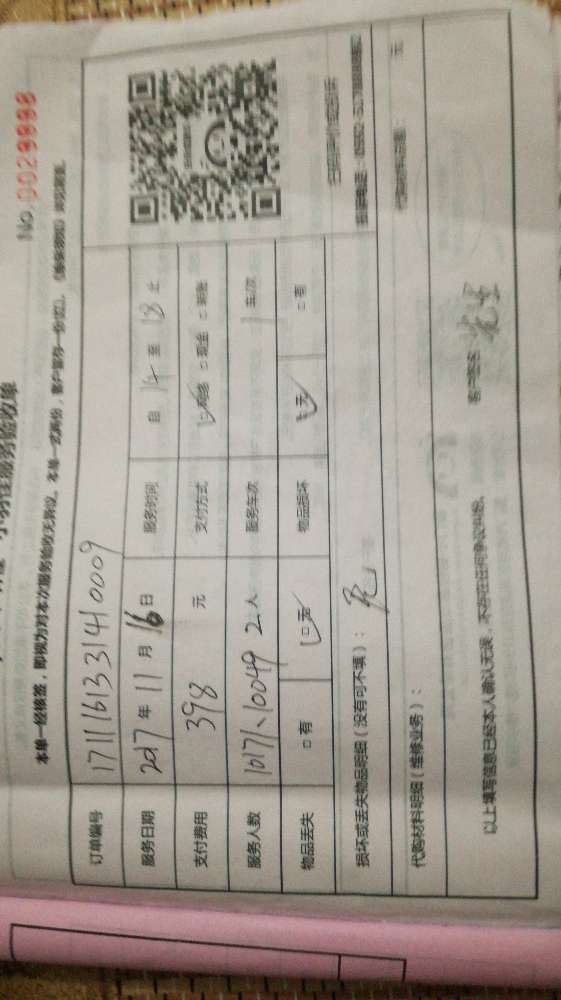 No 0029888
服务验收单
本单一经核签，即视为对本次服务验收无异议。本单一式两份，客户留存一份
订单编号 1711161331410009
服务日期 2017 年 11 月 16 日 服务时间 自 14 至 18 止
支付费用 398 元 支付方式 网络 □现金
服务人数 10171、10049 2 人 服务车次 1 车次
物品丢失 □有 □无 物品损坏 □无 □有
损坏或丢失物品明细（没有可不填）： 无
代购材料明细（维修业务）： 元
以上填写信息已经本人确认无误，不存在任何争议纠纷。 客户签名